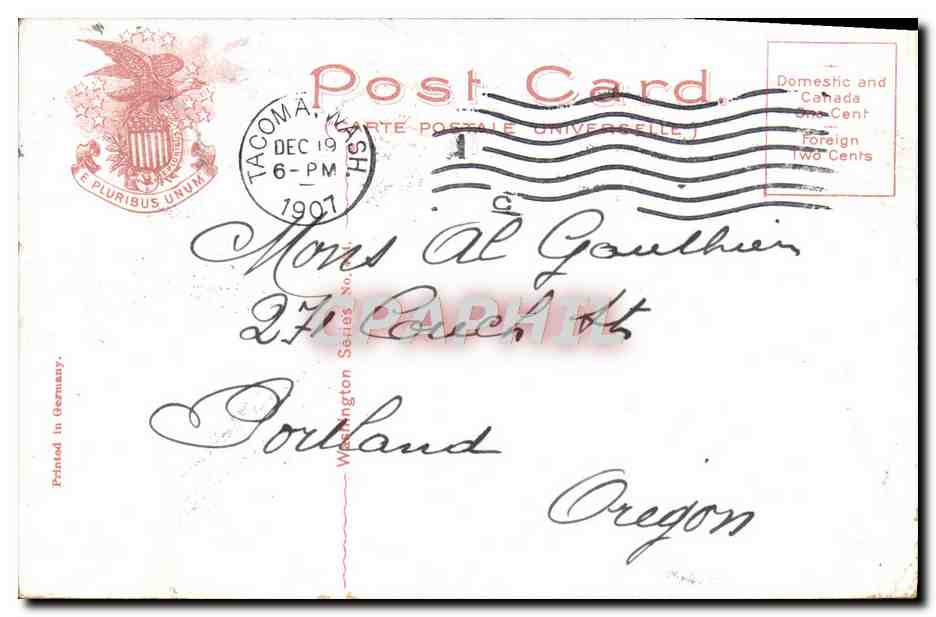 Post Card.
(CARTE POSTALE UNIVERSELLE.)
E PLURIBUS UNUM
TACOMA, WASH.
DEC 19
6-PM
1907
1
C
Domestic and
Canada
One Cent
Foreign
Two Cents
Mons Al Gauthier
271 Couch St
Portland
Oregon
CPAPHIL
Washington Series No.
Printed in Germany.